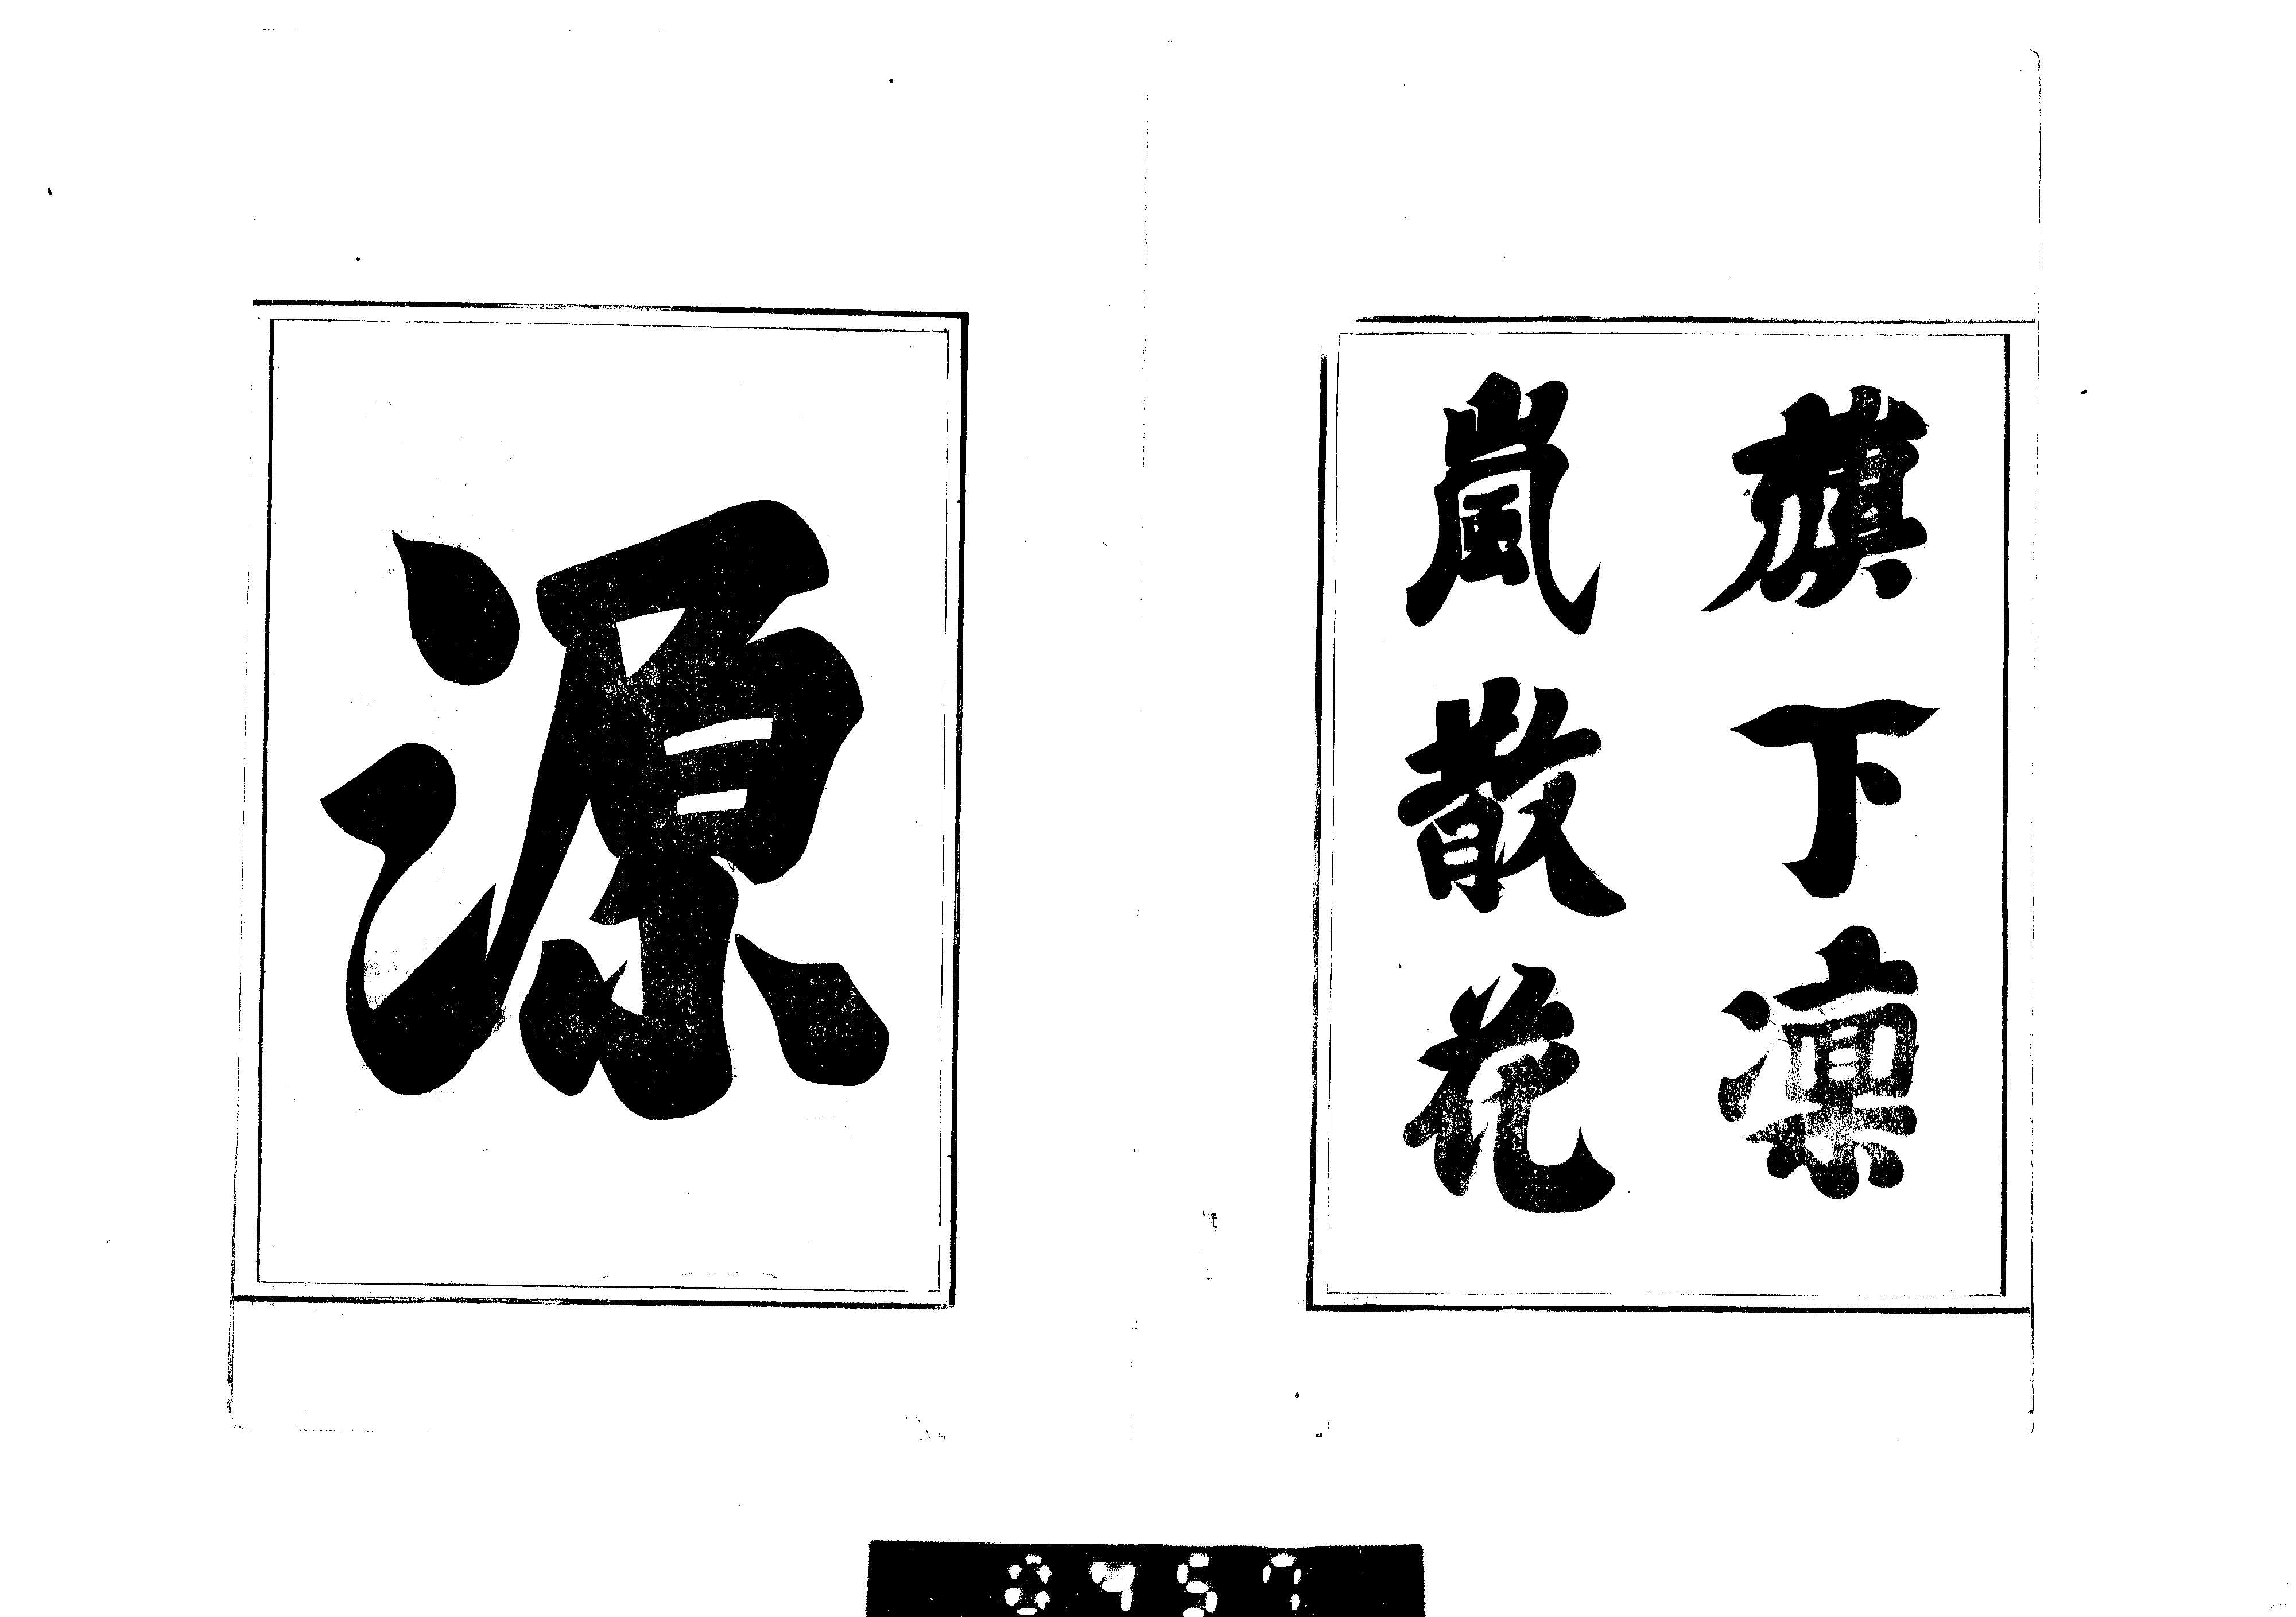 旗下凛
嵐散花
源